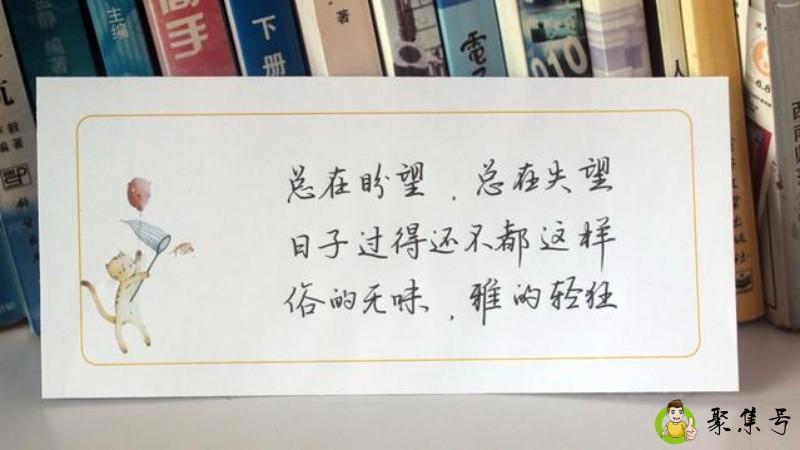 主编
高手
下册
著
電子
2010
编著
总在盼望，总在失望
日子过得还不都这样
俗的无味，雅的轻狂
聚集号